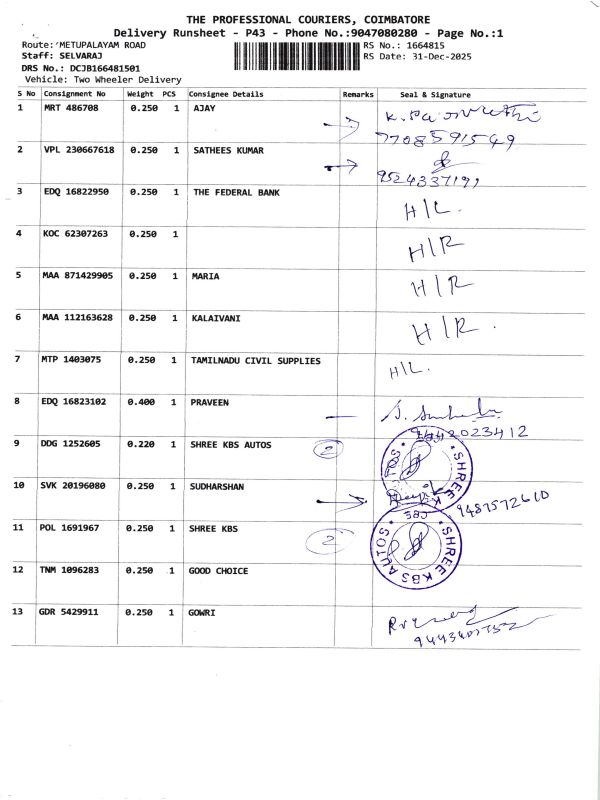 THE PROFESSIONAL COURIERS, COIMBATORE
Delivery Runsheet - P43 - Phone No.:9047080280 - Page No.:1
Route: METUPALAYAM ROAD RS No.: 1664815
Staff: SELVARAJ RS Date: 31-Dec-2025
DRS No.: DCJB166481501
Vehicle: Two Wheeler Delivery
S No Consignment No Weight PCS Consignee Details Remarks Seal & Signature
1 MRT 486708 0.250 1 AJAY
7708591549
2 VPL 230667618 0.250 1 SATHEES KUMAR
9524337191
3 EDQ 16822950 0.250 1 THE FEDERAL BANK H/L.
4 KOC 62307263 0.250 1 H/R
5 MAA 871429905 0.250 1 MARIA H/R
6 MAA 112163628 0.250 1 KALAIVANI H/R.
7 MTP 1403075 0.250 1 TAMILNADU CIVIL SUPPLIES H/L.
8 EDQ 16823102 0.400 1 PRAVEEN
9442023412
9 DDG 1252605 0.220 1 SHREE KBS AUTOS 2 SHREE KBS AUTOS
10 SVK 20196080 0.250 1 SUDHARSHAN
9487572610
11 POL 1691967 0.250 1 SHREE KBS 2 SHREE KBS AUTOS CBE
12 TNM 1096283 0.250 1 GOOD CHOICE
13 GDR 5429911 0.250 1 GOWRI